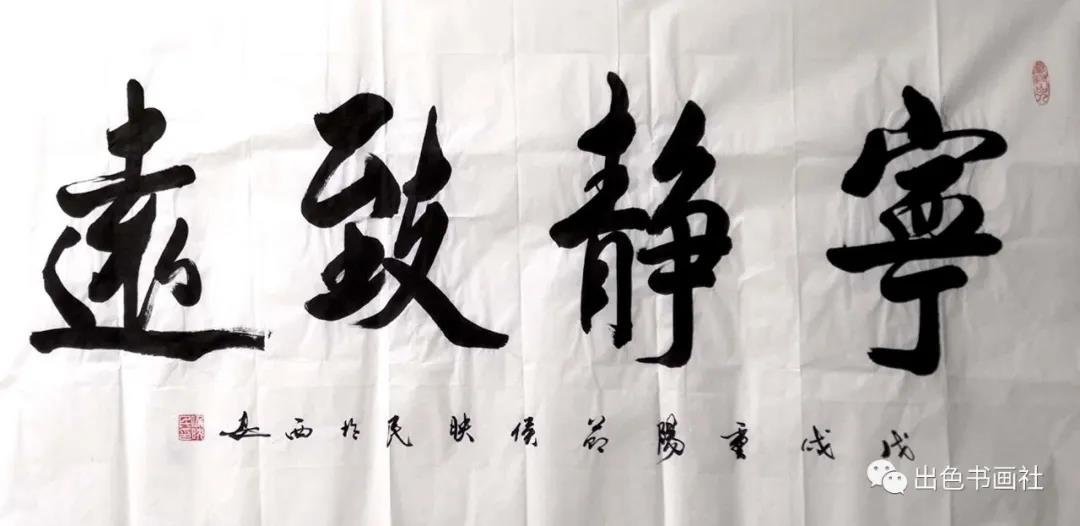 寧靜致遠
戊戌重陽節侯映民於西安
出色书画社